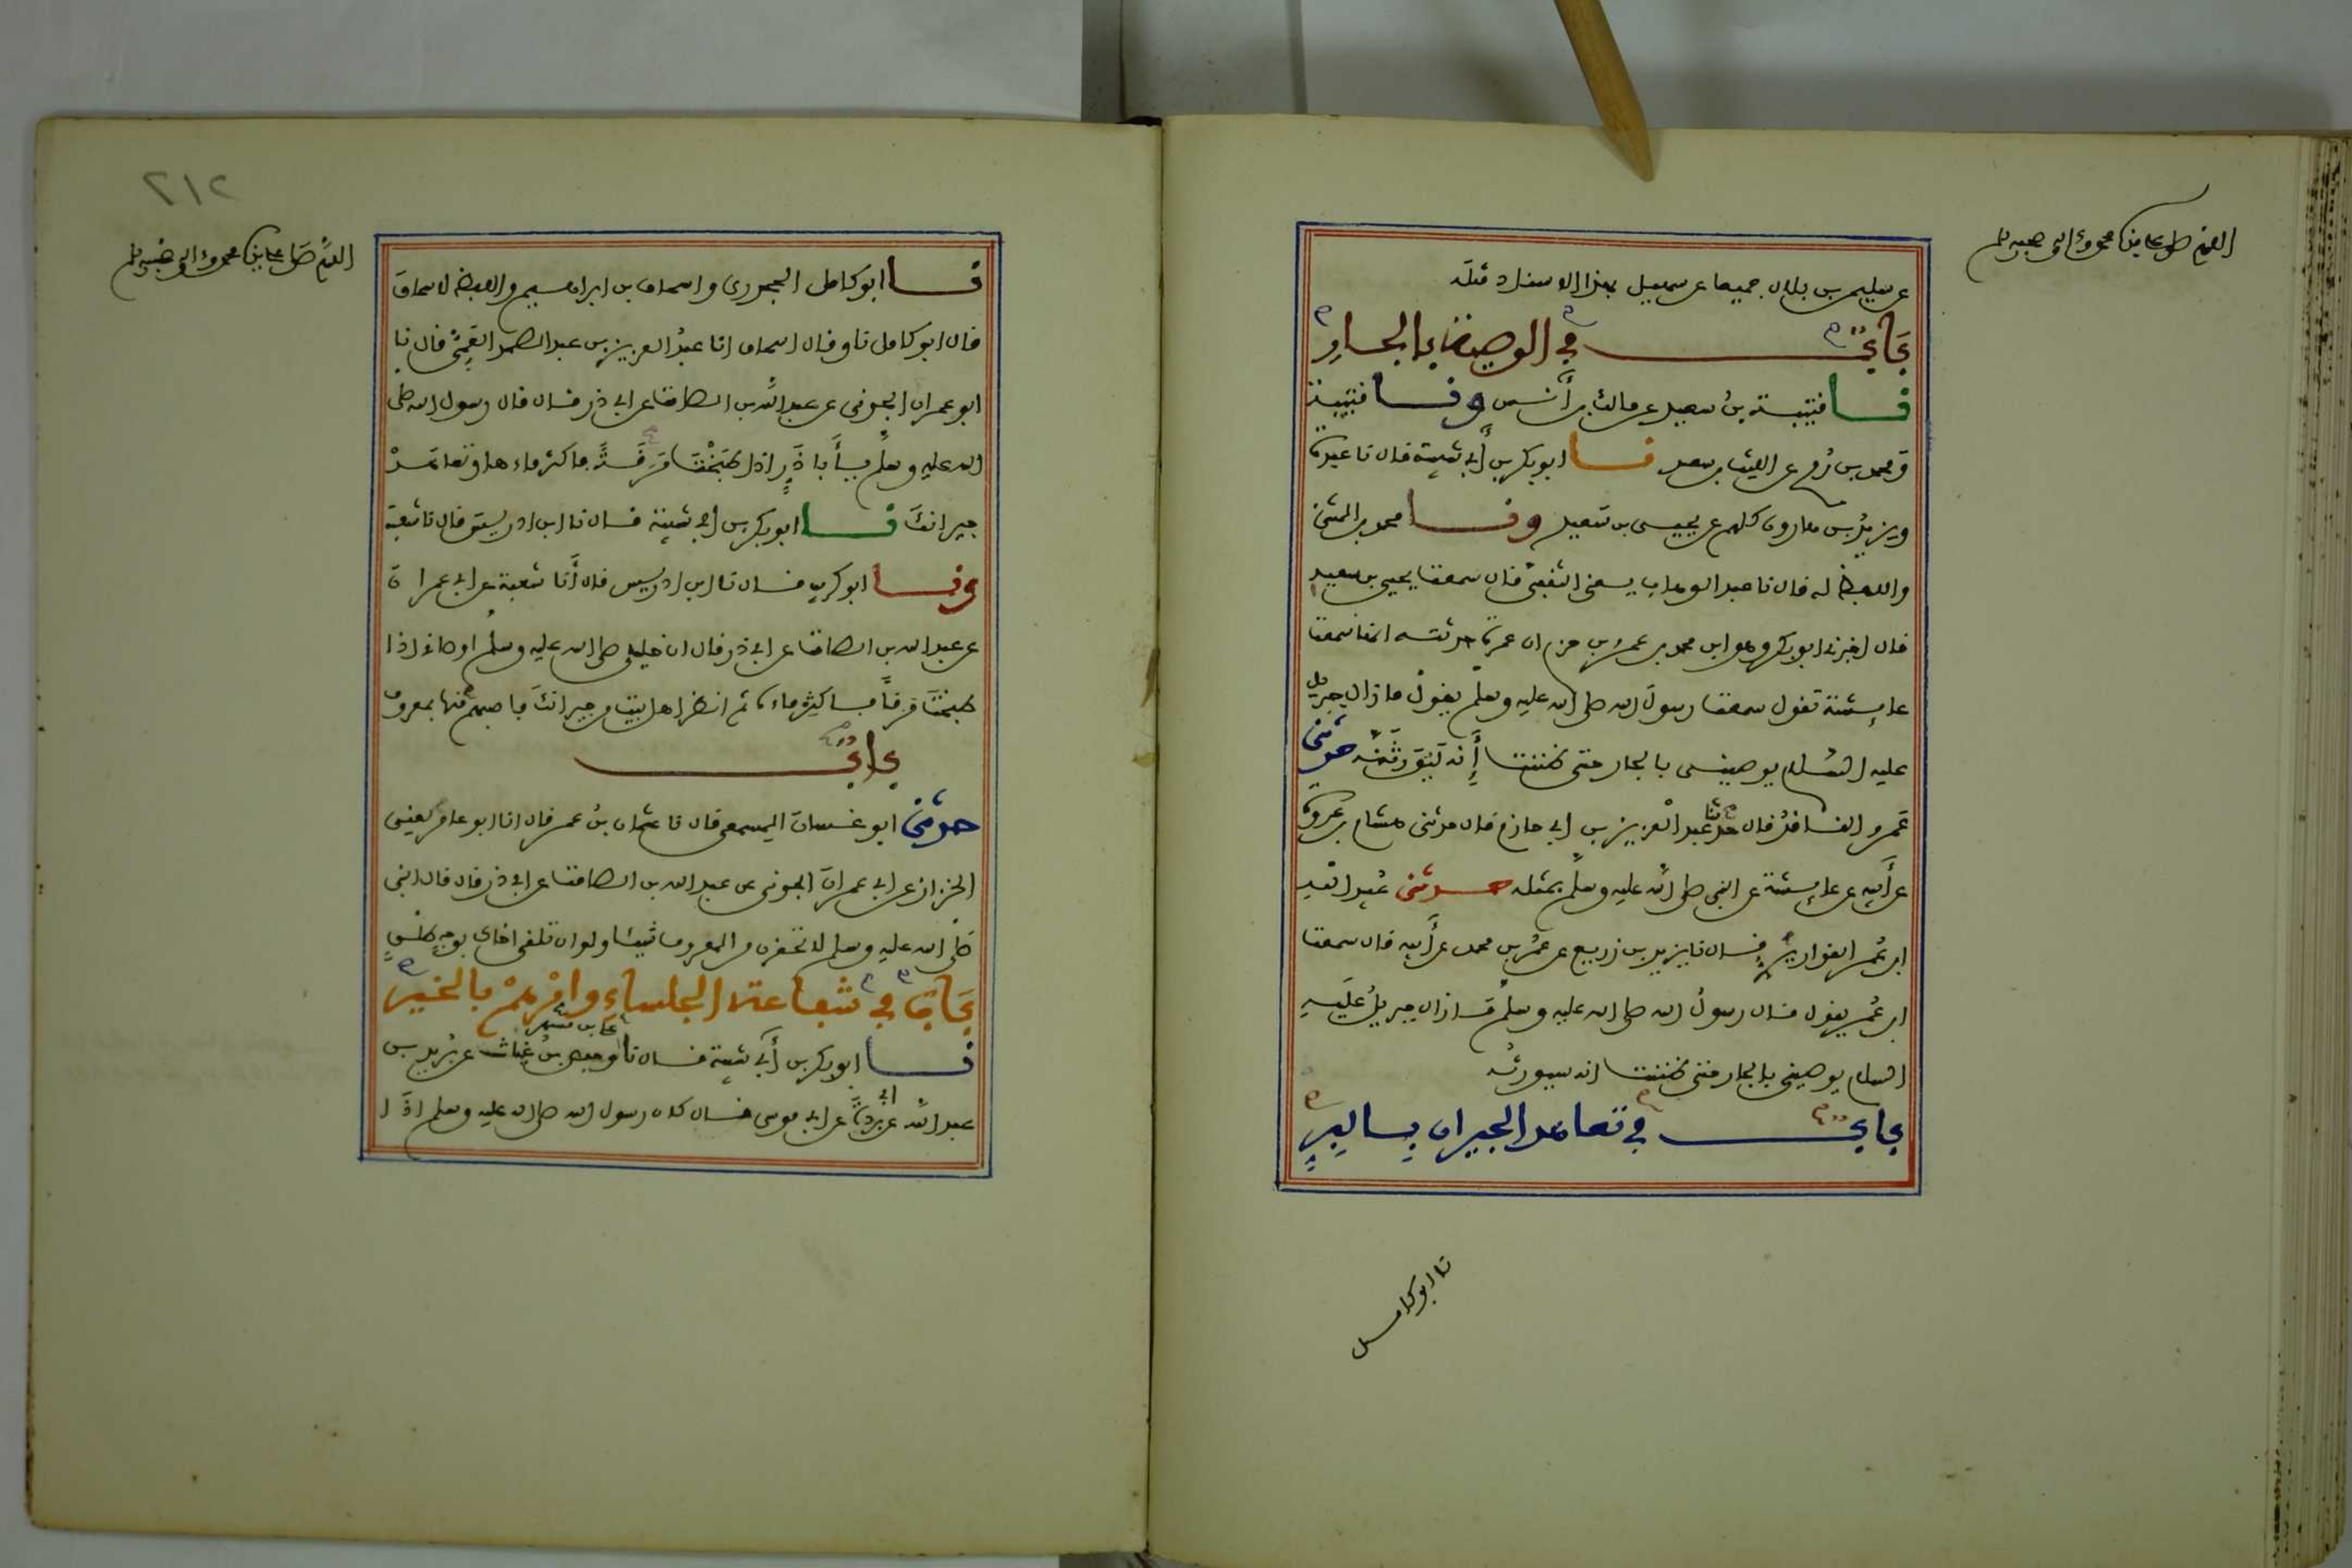 اللهم صل على سيدنا محمد وءاله وصحبه وسلم
عن سليمن بن بلال جميعا عن سهيل بهذا الاسناد مثله
باب في الوصية بالجار
نا قتيبة بن سعيد عن مالك بن أنس ونا قتيبة
ومحمد بن رمح عن الليث بن سعد نا ابو بكر بن أبي شيبة قال نا عبدة
ويزيد بن هارون كلهم عن يحيى بن سعيد ونا محمد بن المثنى
واللفظ له قال نا عبد الوهاب يعني الثقفي قال سمعت يحيى بن سعيد
قال اخبرني ابو بكر وهو ابن محمد بن عمرو بن حزم ان عمرة حدثته انها سمعت
عايشة تقول سمعت رسول الله صلى الله عليه وسلم يقول ما زال جبريل
عليه السلام يوصيني بالجار حتى ظننت أنه ليورثنه حدثني
عمرو الناقد قال حدثنا عبد العزيز بن ابي حازم قال حدثني هشام بن عروة
عن أبيه عن عايشة عن النبي صلى الله عليه وسلم بمثله حدثني عبيد الله
ابن عمر القواريري قال نا يزيد بن زريع عن عمر بن محمد عن أبيه قال سمعت
ابن عمر يقول قال رسول الله صلى الله عليه وسلم ما زال جبريل عليه
السلام يوصيني بالجار حتى ظننت انه سيورثه
باب في تعاهد الجيران بالبر
نا ابو كامل
٢١٢
اللهم صل على سيدنا محمد وءاله وصحبه وسلم
نا ابو كامل الجحدري واسحاق بن ابراهيم واللفظ لاسحاق
قال ابو كامل نا وقال اسحاق انا عبد العزيز بن عبد الصمد العمي قال نا
ابو عمران الجوني عن عبد الله بن الصامت عن ابي ذر قال قال رسول الله صلى
الله عليه وسلم يا أبا ذر اذا طبخت مرقة فاكثر ماءها وتعاهد
جيرانك نا ابو بكر بن ابي شيبة قال نا ابن ادريس قال نا شعبة
ونا ابو كريب قال نا ابن ادريس قال أنا شعبة عن ابي عمران
عن عبد الله بن الصامت عن ابي ذر قال ان خليلي صلى الله عليه وسلم اوصاني اذا
طبخت مرقا فاكثر ماءه ثم انظر اهل بيت من جيرانك فاصبهم منها بمعروف
باب
حدثني ابو غسان المسمعي قال نا عثمان بن عمر قال انا ابو عامر يعني
الخزاز عن ابي عمران الجوني عن عبد الله بن الصامت عن ابي ذر قال قال النبي
صلى الله عليه وسلم لا تحقرن من المعروف شيئا ولو ان تلقى اخاك بوجه طلق
باب في شفاعة الجلساء وامرهم بالخير
نا ابو بكر بن أبي شيبة قال نا علي بن مسهر وحفص بن غياث عن بريد بن
عبد الله عن ابي بردة عن ابي موسى قال كان رسول الله صلى الله عليه وسلم اذا